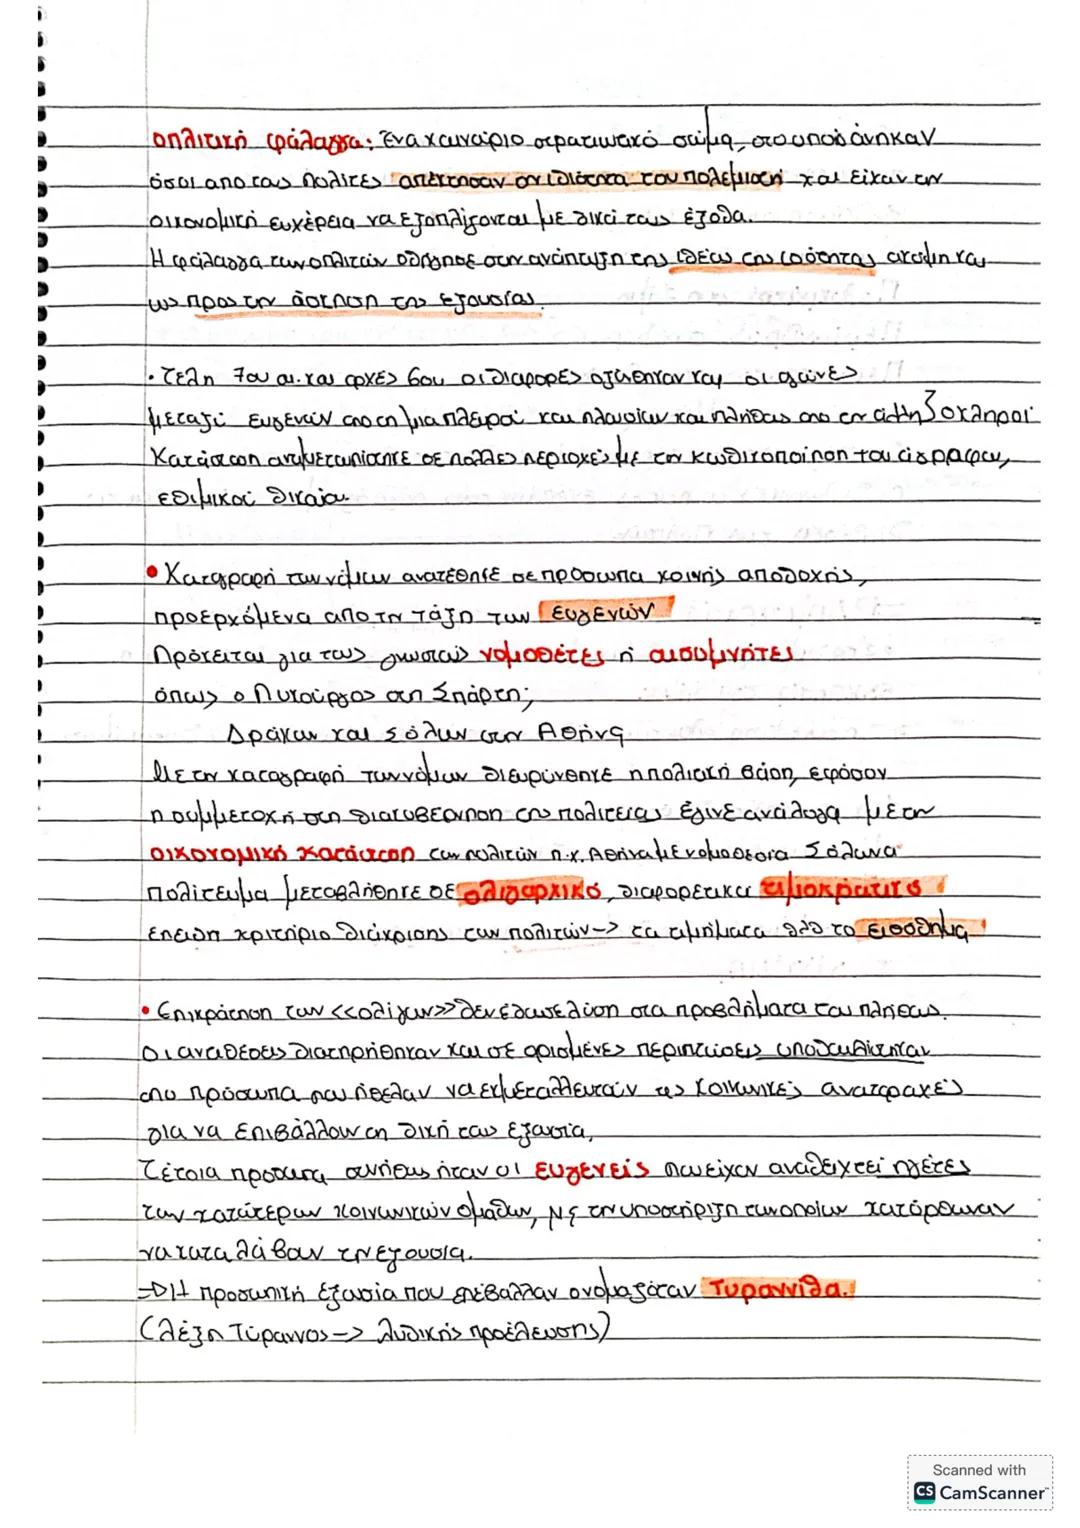 οπλιτική φάλαγγα: Ένα καινούριο στρατιωτικό σώμα, στο οποίο άνηκαν
όσοι απο τους πολίτες απέκτησαν την ιδιότητα του πολεμιστή και είχαν την
οικονομική ευχέρεια να εξοπλίζονται με δικά τους έξοδα.
Η φάλαγγα των οπλιτών οδήγησε στην ανάπτυξη της ιδέας της ισότητας ακόμη και
ως προς την άσκηση της εξουσίας.
• Τέλη 7ου αι. και αρχές 6ου οι διαφορές οξύνθηκαν και οι αγώνες
μεταξύ ευγενών απο τη μια πλευρά και πλουσίων και πλήθους απο την άλλη > σκληροί
Κατάσταση αντιμετωπίστηκε σε πολλές περιοχές με την κωδικοποίηση του άγραφου,
εθιμικού δικαίου
• Καταγραφή των νόμων ανατέθηκε σε πρόσωπα κοινής αποδοχής,
προερχόμενα απο τη τάξη των ευγενών
Πρόκειται για τους γνωστούς νομοθέτες ή αισυμνήτες
όπως ο Λυκούργος στη Σπάρτη;
Δράκων και Σόλων στην Αθήνα
Με την καταγραφή των νόμων διευρύνθηκε η πολιτική βάση, εφόσον
η συμμετοχή στη διακυβέρνηση της πολιτείας έγινε ανάλογα με την
οικονομική κατάσταση των πολιτών π.χ. Αθήνα με νομοθεσία Σόλωνα
πολίτευμα μεταβλήθηκε σε ολιγαρχικό, διαφορετικά τιμοκρατικό
επειδη κριτήριο διάκρισης των πολιτών -> τα τιμήματα δλδ το εισόδημα
• Επικράτηση των <<ολίγων>> δεν έδωσε λύση στα προβλήματα του πλήθους.
Οι αντιθέσεις διατηρήθηκαν και σε ορισμένες περιπτώσεις υποδαυλίστηκαν
απο πρόσωπα που ήθελαν να εκμεταλλευτούν τις κοινωνικές αναταραχές
για να επιβάλλουν τη δική τους εξουσία,
Τέτοια πρόσωπα συνήθως ήταν οι ευγενείς που είχαν αναδειχτεί ηγέτες
των κατώτερων κοινωνικών ομάδων, με την υποστήριξη των οποίων κατόρθωναν
να καταλάβουν την εξουσία.
=> Η προσωπική εξουσία που επέβαλλαν ονομαζόταν Τυραννίδα.
(λέξη Τύραννος -> λυδικής προέλευσης)
Scanned with
CS CamScanner